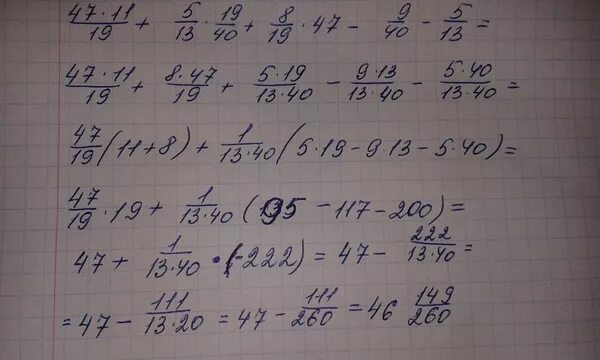 47·11/19 + 5/13 · 19/40 + 8/19 · 47 - 9/40 - 5/13 =
47·11/19 + 8·47/19 + 5·19/13·40 - 9·13/13·40 - 5·40/13·40 =
47/19 (11+8) + 1/13·40 (5·19 - 9·13 - 5·40) =
47/19 · 19 + 1/13·40 (95 - 117 - 200) =
47 + 1/13·40 · (-222) = 47 - 222/13·40 =
= 47 - 111/13·20 = 47 - 111/260 = 46 149/260